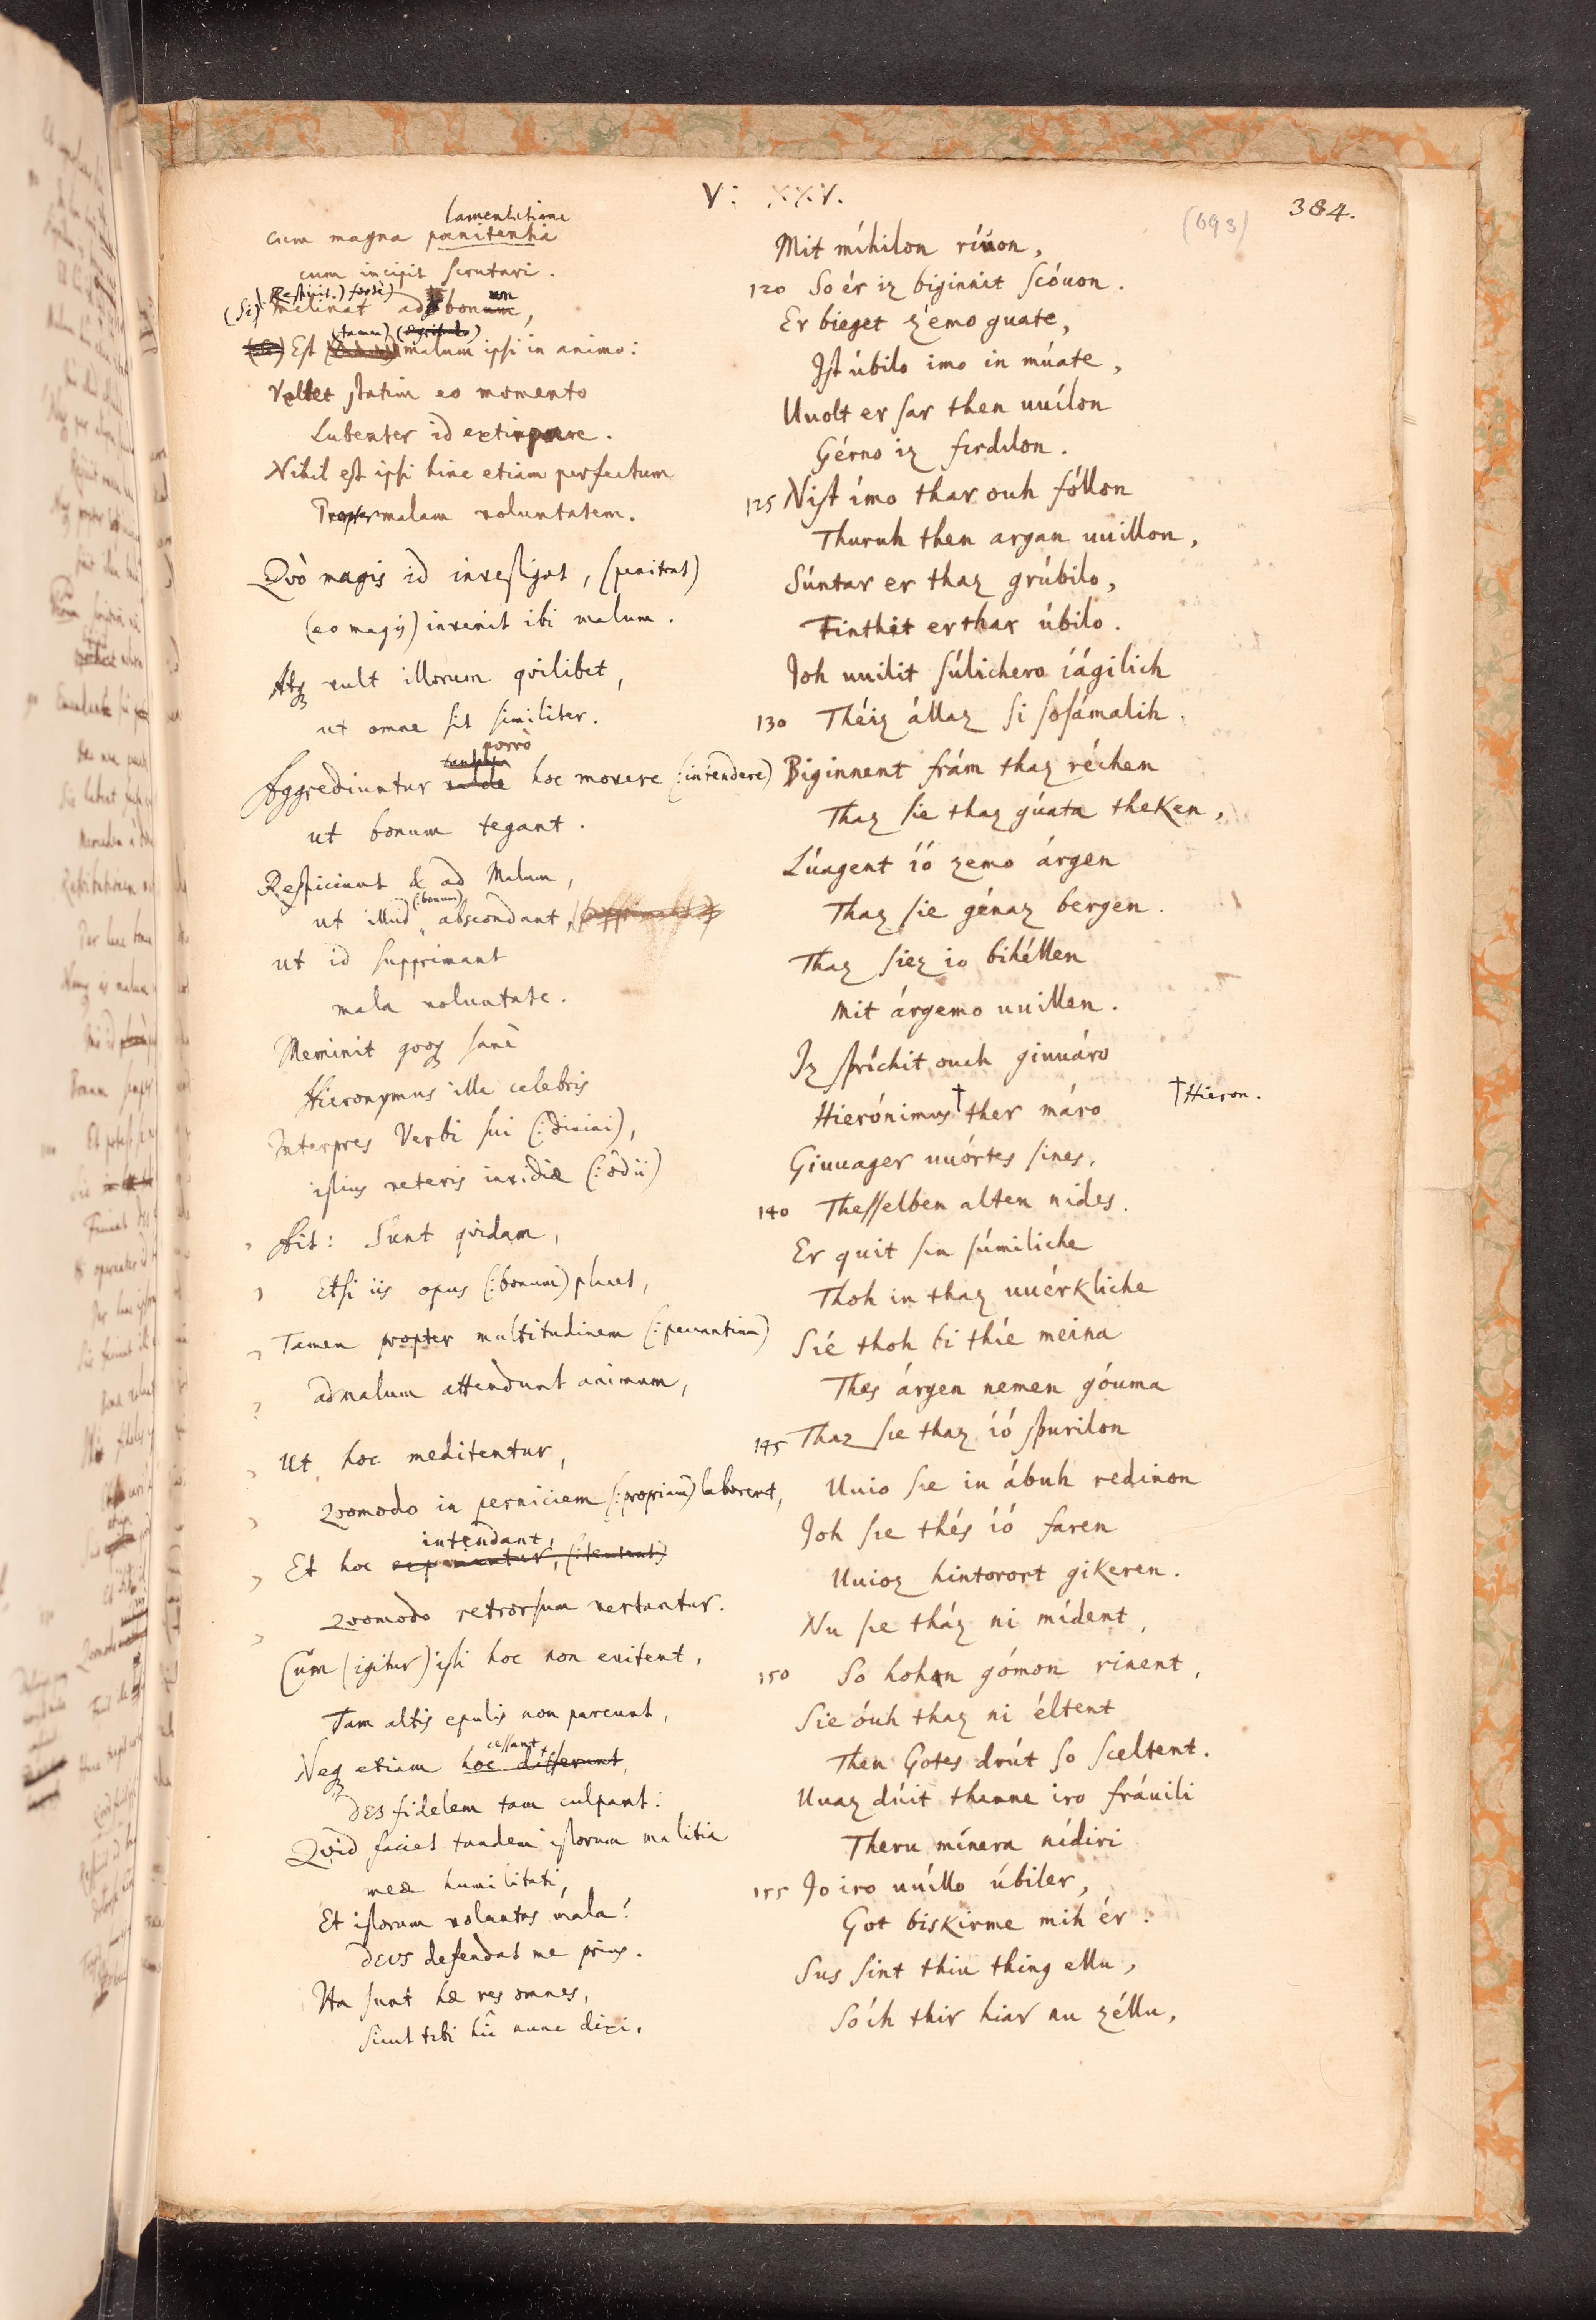 V: XXV.
384.
(693)
lamentatione
cum magna pœnitentia
cum incipit scrutari.
(Si) inclinat ad bonum,
non
Est (tamen) malum ipsi in animo:
Vellet statim eo momento
Lubenter id
Nihil est ipsi hinc etiam perfectum
Propter malam voluntatem.
Qvò magis id investigat, (penitrat)
(eo magis) invenit ibi malum.
Atq vult illorum qvilibet,
ut omne sit similiter.
porrò
Aggrediuntur valde hoc movere (:intendere)
ut bonum tegant.
Respiciunt & ad Malum,
(:bonum)
ut illud abscondant,
ut id supprimant
mala voluntate.
Meminit qvoq sanè
Hieronymus ille celebris
Interpres Verbi sui (:divini),
istius veteris invidiæ (:odii)
Ait: Sunt qvidam,
Etsi iis opus (:bonum) placet,
Tamen propter multitudinem (:peccantium)
ad malum attendunt animum,
Ut hoc meditentur,
Qvomodo in perniciem (:propriam) laborent,
intendant,
Et hoc experiantur, (:tentent)
Qvomodo retrorsum vertantur.
Cùm (igitur) isti hoc non evitent,
Tam altis epulis non parcunt,
cessant
Neq etiam hoc differunt,
DEs fidelem tam culpant:
Qvid faciet tandem istorum malitia
meæ humilitati,
Et istorum voluntas mala?
DEUS defendat me prius.
Ita sunt hæ res omnes,
Sicut tibi hîc nunc dixi,
Mit míhilon ríuon,
120 So ér iz biginnit scóuon.
Er bieget zemo guate,
Ist úbilo imo in múate,
Uuolt er sar then uuílon
Gérno iz firdilon.
125 Nist ímo thar ouh fóllon
Thuruh then argan uuillon,
Súntar er thaz grúbilo,
Finthit er thar úbilo.
Joh uuilit súlichero iágilich
130 Théiz állaz si sosámalih.
Biginnent frám thaz réchen
Thaz sie thaz gúata theken,
Lúagent íó zemo árgen
Thaz sie génaz bergen.
Thaz siez io bihéllen
Mit árgemo uuillen.
Iz spríchit ouch giuuáro
Hierónimus† ther máro
† Hieron.
Giuuager uuórtes sines,
140 Thesselben alten nides.
Er quit sin súmiliche
Thoh in thaz uuérk liche
Sié thoh bi thíe meina
Thes árgen nemen góuma
145 Thaz sie thaz íó spurilon
Uuio sie in ábuh redinon
Joh sie thés íó faren
Uuioz hintorort gikeren.
Nu sie tház ni mídent,
150 So hohen gómon rinent,
Sie óuh thaz ni éltent
Then Gotes drút so sceltent.
Uuaz dúit thanne iro fráuili
Theru mínera nídiri
155 Jo iro uuíllo úbiler,
Got biskirme mih ér:
Sus sint thiu thing ellu,
So íh thir hiar nu zéllu,